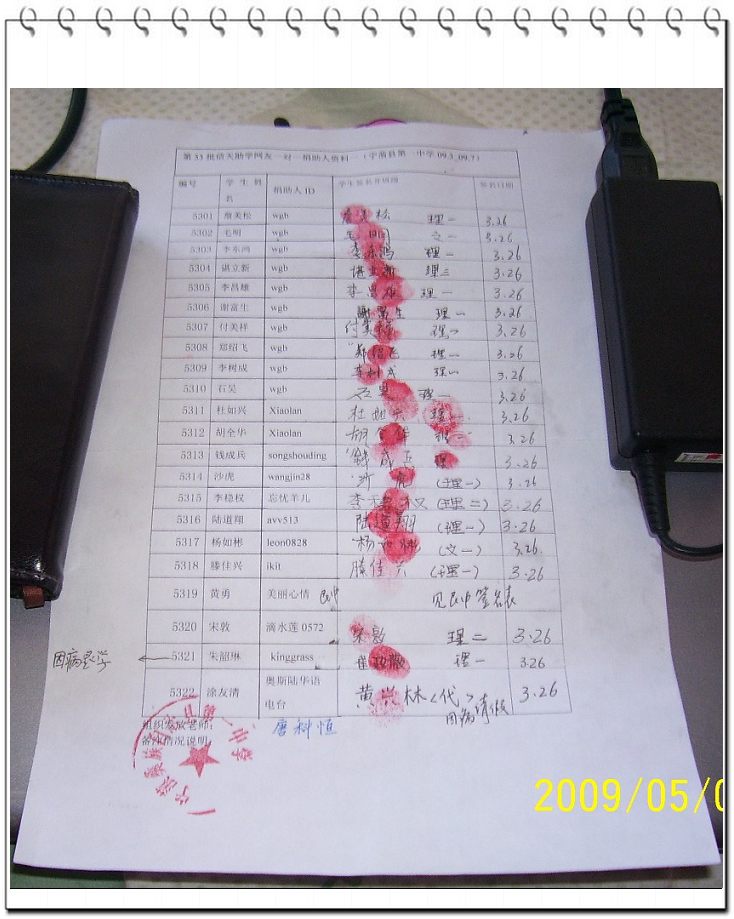 第33批信天助学网友一对一捐助人资料一（宁蒗县第一中学09.3_09.7）
编号 学生姓名 捐助人ID 学生签名并班级 签名日期
5301 詹美松 wgb 詹美松 理一 3.26
5302 毛明 wgb 毛明 文一 3.26
5303 李东鸿 wgb 李东鸿 理一 3.26
5304 谌立新 wgb 谌立新 理三 3.26
5305 李昌雄 wgb 李昌雄 理一 3.26
5306 谢富生 wgb 谢富生 理一 3.26
5307 付美祥 wgb 付美祥 3.26
5308 郑绍飞 wgb 郑绍飞 理一 3.26
5309 李树成 wgb 李树成 理一 3.26
5310 石昊 wgb 石昊 理一 3.26
5311 杜如兴 Xiaolan 杜如兴 理一 3.26
5312 胡全华 Xiaolan 胡全华 3.26
5313 钱成兵 songshouding 钱成兵 理 3.26
5314 沙虎 wangjin28 沙虎 （理一） 3.26
5315 李稳权 忘忧羊儿 李稳权 （理二） 3.26
5316 陆道翔 avv513 陆道翔 （理一） 3.26
5317 杨如彬 leon0828 杨如彬 （文一） 3.26
5318 滕佳兴 ikit 滕佳兴 （理一） 3.26
5319 黄勇 美丽心情 民中 见民中签名表
5320 宋敦 滴水莲0572 宋敦 理二 3.26
因病退学 5321 朱韶琳 kinggrass 理一 3.26
5322 涂友清 奥斯陆华语电台 黄兴林<代> 因病请假 3.26
组织发放老师： 唐科恒
备注情况说明：
2009/05/0